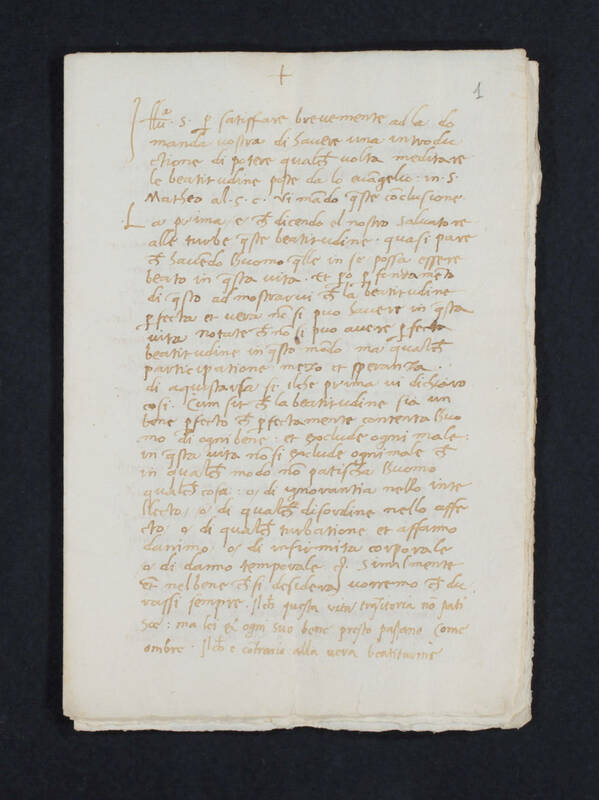 +
1
Illu.a S. p satisffare brevemente ad la do
manda vostra di havere una introdu
ctione di potere qualch volta meditare
le beatitudine poste da lo evangelio in S.
Matheo al .5. c. Vi mãdo q̃ste cõclusione.
La prima e ch dicendo el nostro Salvatore
alle turbe q̃ste beatitudine quasi pare
ch havẽdo l'huomo q̃lle in se possa essere
beato in q̃sta vita. Et po p fondamẽto
di q̃sto ad mostrarvi ch la beatitudine
pfecta et vera nõ si puo havere in q̃sta
vita notate ch nõ si puo avere pfecta
beatitudine in q̃sto modo ma qualch
participatione mezo et speranza
di aquistarsela. Il che prima vi dichiaro
cosi. Cum sit ch la beatitudine sia un
bene pfecto ch pfectamente contenta l'huo
mo di ogni bene: et exclude ogni male:
in q̃sta vita nõ si exclude ogni male ch
in qualch modo nõ patischa l'huomo
qualch cosa: o di ignorantia nello inte
llecto, o di qualch disordine nello affe
cto, o di qualch turbatione et affanno
danimo, o di infirmita corporale
o di danno temporale. Similmente
Et nel bene ch si desidera vorremo ch du
rassi sempre. Ilch questa vita trãsitoria nõ pati
sce: ma lei et ogni suo bene presto passano come
ombre. Ilch e cõtrario alla vera beatitudine